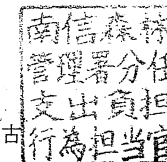 南信森林
管理署分任
支出負担
行為担当官
古